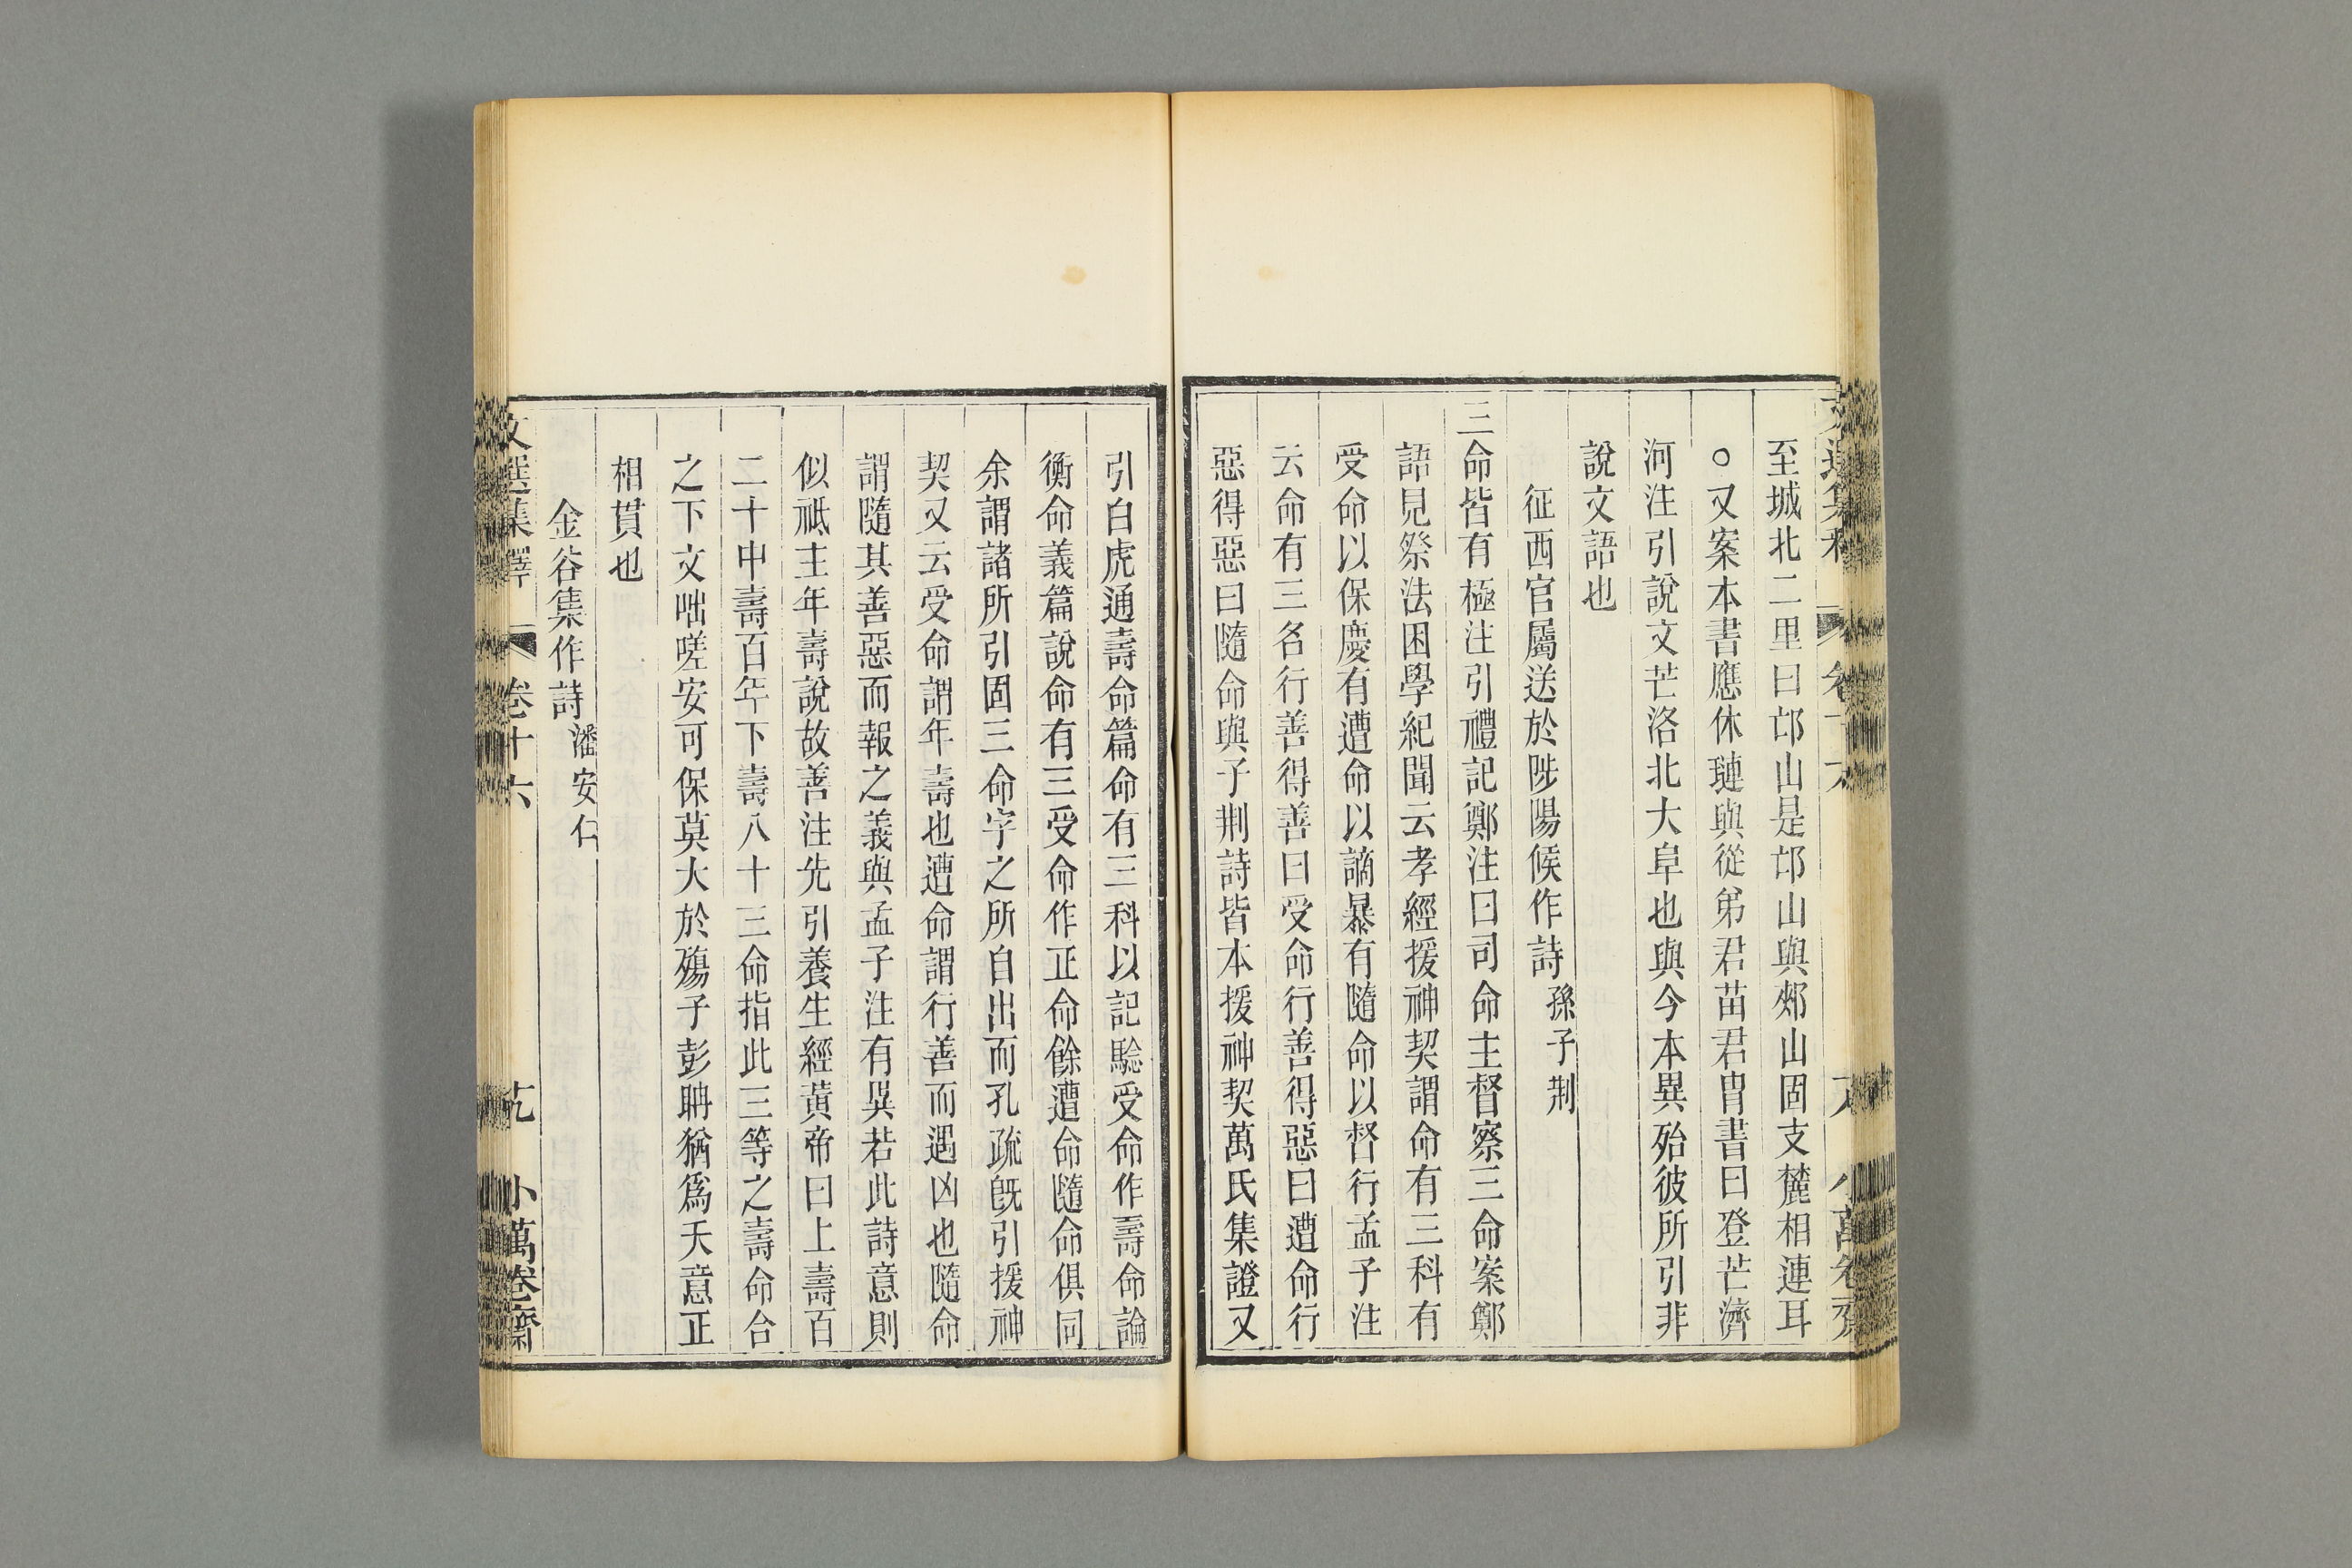 至城北二里曰邙山是邙山與郟山固支麓相連耳
○又案本書應休璉與從弟君苗君冑書曰登芒濟
河注引說文芒洛北大阜也與今本異殆彼所引非
說文語也
征西官屬送於陟陽候作詩孫子荆
三命皆有極注引禮記鄭注曰司命主督察三命案鄭
語見祭法困學紀聞云孝經援神契謂命有三科有
受命以保慶有遭命以謫暴有隨命以督行孟子注
云命有三名行善得善曰受命行善得惡曰遭命行
惡得惡曰隨命與子荆詩皆本援神契萬氏集證又
引白虎通壽命篇命有三科以記驗受命作壽命論
衡命義篇說命有三受命作正命餘遭命隨命俱同
余謂諸所引固三命字之所自出而孔疏旣引援神
契又云受命謂年壽也遭命謂行善而遇凶也隨命
謂隨其善惡而報之義與孟子注有異若此詩意則
似祗主年壽說故善注先引養生經黃帝曰上壽百
二十中壽百年下壽八十三命指此三等之壽命合
之下文咄嗟安可保莫大於殤子彭聃猶爲夭意正
相貫也
金谷集作詩潘安仁
文選集釋 卷十六 小萬卷齋